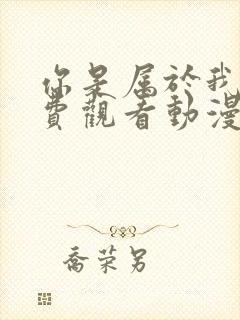 你是属於我
費觀看動漫
喬荣另